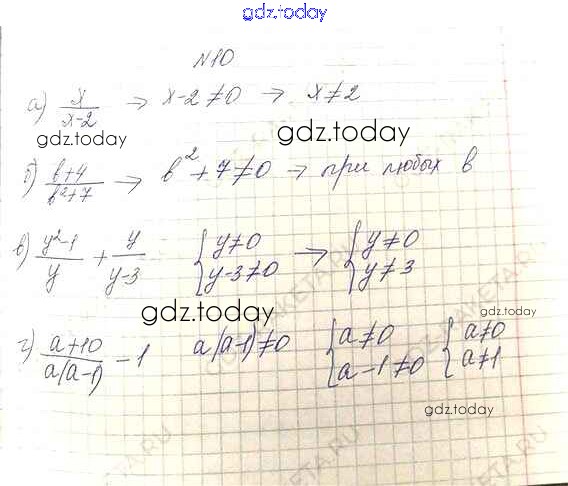 gdz.today
N10
а) x/(x-2) → x-2≠0 → x≠2
gdz.today gdz.today
б) (b+4)/(b²+7) → b²+7≠0 → при любых b
в) (y²-1)/y + y/(y-3) {y≠0 {y-3≠0 → {y≠0 {y≠3
gdz.today gdz.today
г) (a+10)/(a(a-1)) - 1 a(a-1)≠0 {a≠0 {a-1≠0 {a≠0 {a≠1
gdz.today